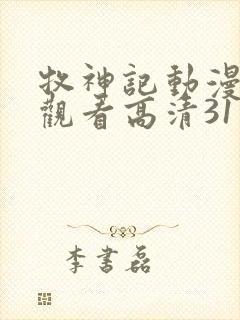 牧神記動漫
觀看高清31
李書磊